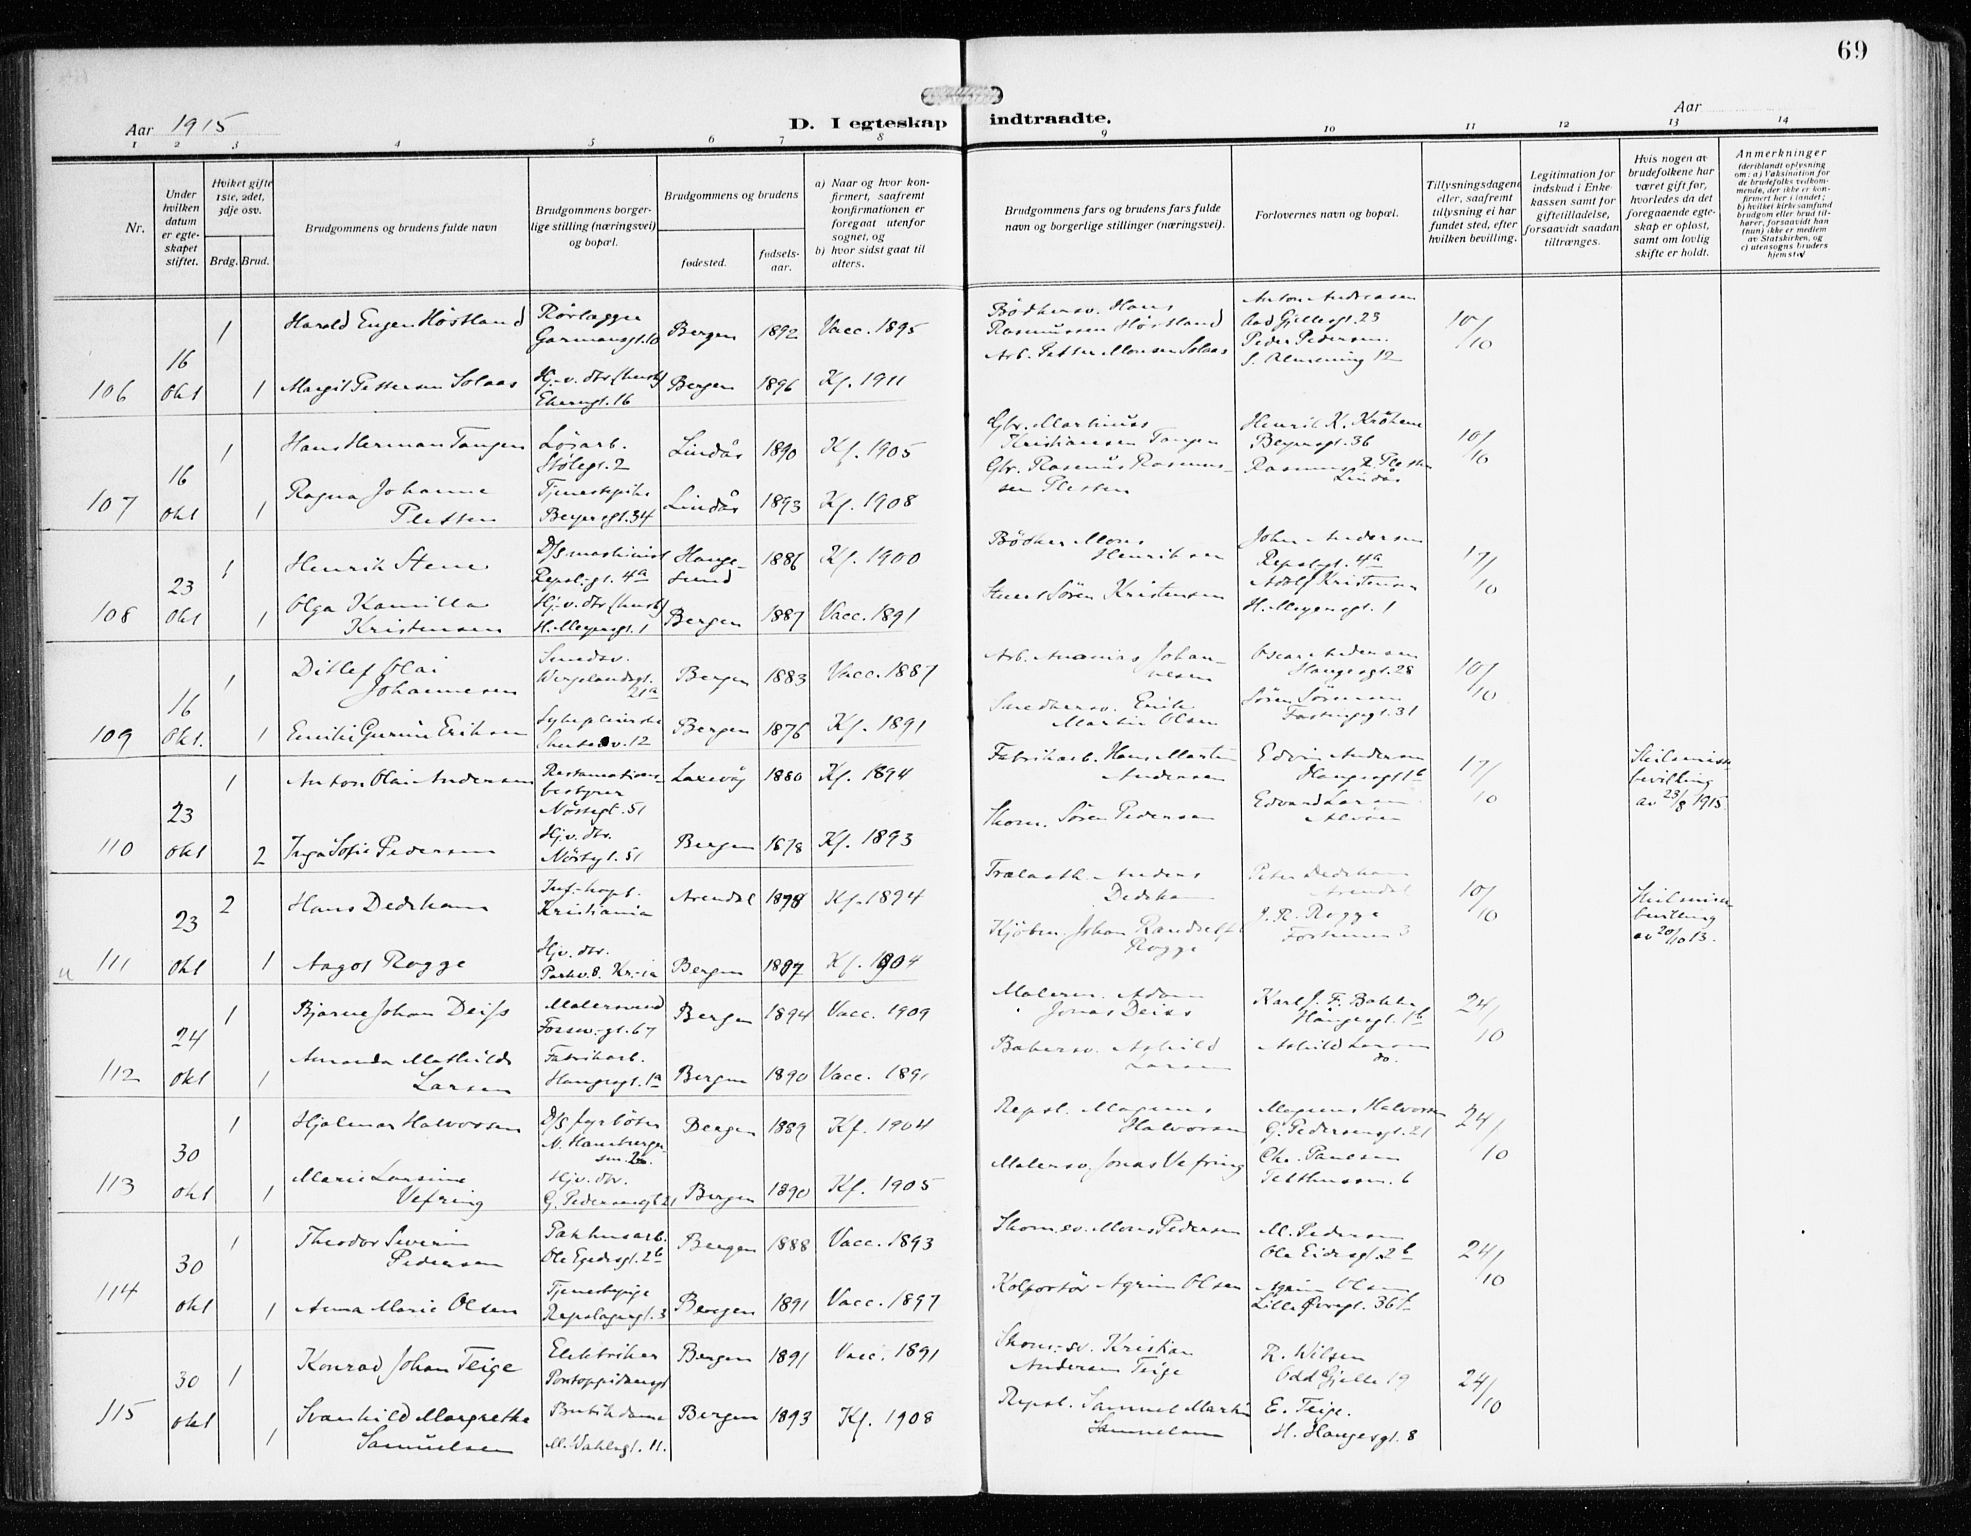 69
Aar 1915
D. I egteskap indtraadte.
Aar
1 2 3 4 5 6 7 8 9 10 11 12 13 14
Nr.
Under hvilken datum er egteskapet stiftet.
Hviket gifte 1ste, 2det, 3dje osv.
Brdg. Brud.
Brudgommens og brudens fulde navn
Brudgommens borgerlige stilling (næringsvei) og bopæl.
Brudgommens og brudens
fødested.
fødselsaar.
a) Naar og hvor konfirmert, saafremt konfirmationen er foregaat utenfor sognet, og
b) hvor sidst gaat til alters.
Brudgommens fars og brudens fars fulde navn og borgerlige stillinger (næringsvei).
Forlovernes navn og bopæl.
Tillysningsdagene eller, saafremt tillysning ei har fundet sted, efter hvilken bevilling.
Legitimation for indskud i Enkekassen samt for giftetilladelse, forsaavidt saadan tiltrænges.
Hvis nogen av brudefolkene har været gift før, hvorledes da det foregaaende egteskap er opløst, samt om lovlig skifte er holdt.
Anmerkninger (deriblandt oplysning om: a) Vaksination for de brudefolks vedkommende, der ikke er konfirmert her i landet; b) hvilket kirkesamfund brudgom eller brud tilhører, forsaavidt han (hun) ikke er medlem av Statskirken, og c) utensogns bruders hjemsted
106 16 Okt 1 Harald Eugen Høstland Rørlægger Bergen 1892 Vacc. 1895 Bødkersv. Hans Rasmussen Høstland Anton Andreasen Odd Gjellesgt. 23 10/10
1 Margit Pettersen Solaas Hj. v. dtr (husb) Bergen 1896 Kf. 1911 Arb. Petter Monsen Solaas Peder Pedersen S. Almening 12
107 16 Okt 1 Hans Herman Tangen Løsarb. Stølegt. 2 Lindås 1890 Kf. 1905 Gbr. Martinus Kristiansen Tangen Henrik K. Beyersgt. 36 10/10
1 Ragna Johanne Pletten Tjenestpike Beyersgt. 34 Lindås 1893 Kf. 1908 Gbr. Rasmus Rasmussen Pletten Rasmus R. Pletten Lindås
108 23 Okt 1 Henrik Stene D/S maskinist Repslgt. 4a Haugesund 1886 Kf. 1900 Bødker Mons Henriksen John Andersen Repslgt. 4a 17/10
1 Olga Kamilla Kristensen Hj. v. dtr (husb) H. Meyersgt. 1 Bergen 1887 Vacc. 1891 Søren Kristensen Adolf Kristensen H. Meyersgt. 1
109 16 Okt. 1 Ditlef Olai Johannesen Smedsv. Wergelandsgt. 21a Bergen 1883 Vacc. 1887 Arb. Ananias Johannesen Oscar Andersen Haugesgt. 28 10/10
1 Emilie Gurine Eriksen Sykepleierske 12 Bergen 1876 Kf. 1891 Smedsv. Erik Martin Olsen Søren Sørensen 31
110 23 Okt 1 Anton Olai Andersen Restaurationsbestyrer Nøstegt. 51 Laxevåg 1880 Kf. 1894 Fabrikarb. Hans Martin Andersen Edvin Andersen Haugesgt 1b 17/10 Skilsmissebevilling av 23/8 1915.
2 Inga Sofie Pedersen Hj. v. dtr. Nøstegt. 51 Bergen 1878 Kf. 1893 Skom. Søren Pedersen Edvard Larsen Alvøen
111 23 Okt 2 Hans Dedekam Inf. kapt. Kristiania Arendal 1878 Kf. 1894 Trælasth. Anders Dedekam Peter Dedekam Arendal 10/10 Skilsmissebevilling av 20/10 13.
1 Aagot Rogge Hj. v. dtr. Parkv. 8. Kr.ia Bergen 1887 Kf. 1904 Kjøbm. Johan Randulf Rogge J. R. Rogge Fortunen 3
112 24 Okt 1 Bjarne Johan Deiss Malersvend Forsv.gt. 67 Bergen 1894 Vacc. 1909 Malerm. Adam Jonas Deiss Karl J. F. Bakke Haugesgt. 1b 24/10
1 Amanda Mathilde Larsen Fabrikarb. Haugesgt. 1a Bergen 1890 Vacc. 1891 Bakersv. Askild Larsen Askild Larsen do.
113 30 Okt 1 Hjalmar Halvorsen D/S fyrbøter Bergen 1889 Kf. 1904 Repsl. Magnus Halvorsen Magnus Halvorsen G. Pedersensgt. 21 24/10
1 Marie Larsine Vefring Hj. v. dtr. G. Pedersensgt 21 Bergen 1890 Kf. 1905 Malersv. Jonas Vefring Chr. Paulsen Telthussm. 6
114 30 Okt 1 Theodor Severin Pedersen Pakhusarb. Ole Egedesgt. 2b Bergen 1888 Vacc. 1893 Skom. sv. Mons Pedersen M. Pedersen Ole Eidesgt. 2b 24/10
1 Anna Marie Olsen Tjenestepige Repslagergt. 3 Bergen 1891 Vacc. 1897 Kolportør Agrim Olsen Agrim Olsen Lille Øvregt. 36
115 30 Okt 1 Konrad Johan Teige Elektriker Pontoppidansgt Bergen 1891 Vacc. 1891 Skom. sv. Kristian Andersen Teige R. Nilsen Odd Gjelle 19 24/10
1 Svanhild Margrethe Samuelsen Butikdame M. Wahlsgt. 11. Bergen 1893 Kf. 1908 Repsl. Samuel Martin Samuelsen E. Teige. H. Haugesgt. 8